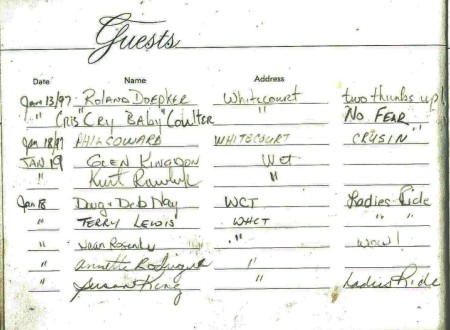 Guests
Date Name Address
Jan 13/97 "Roland Doepker Whitecourt two thumbs up!
" Cris "Cry Baby" Coulter " No Fear
Jan 18/97 Phil Coward Whitecourt Crusin"
JAN 19 Glen Kingdon Wct
" Kurt "
Jan 18 Doug + Deb Nay WCT Ladies Ride
" Terry Lewis WHCT " "
" Joan " Wow!
" Annette "
" Susan King " Ladies Ride